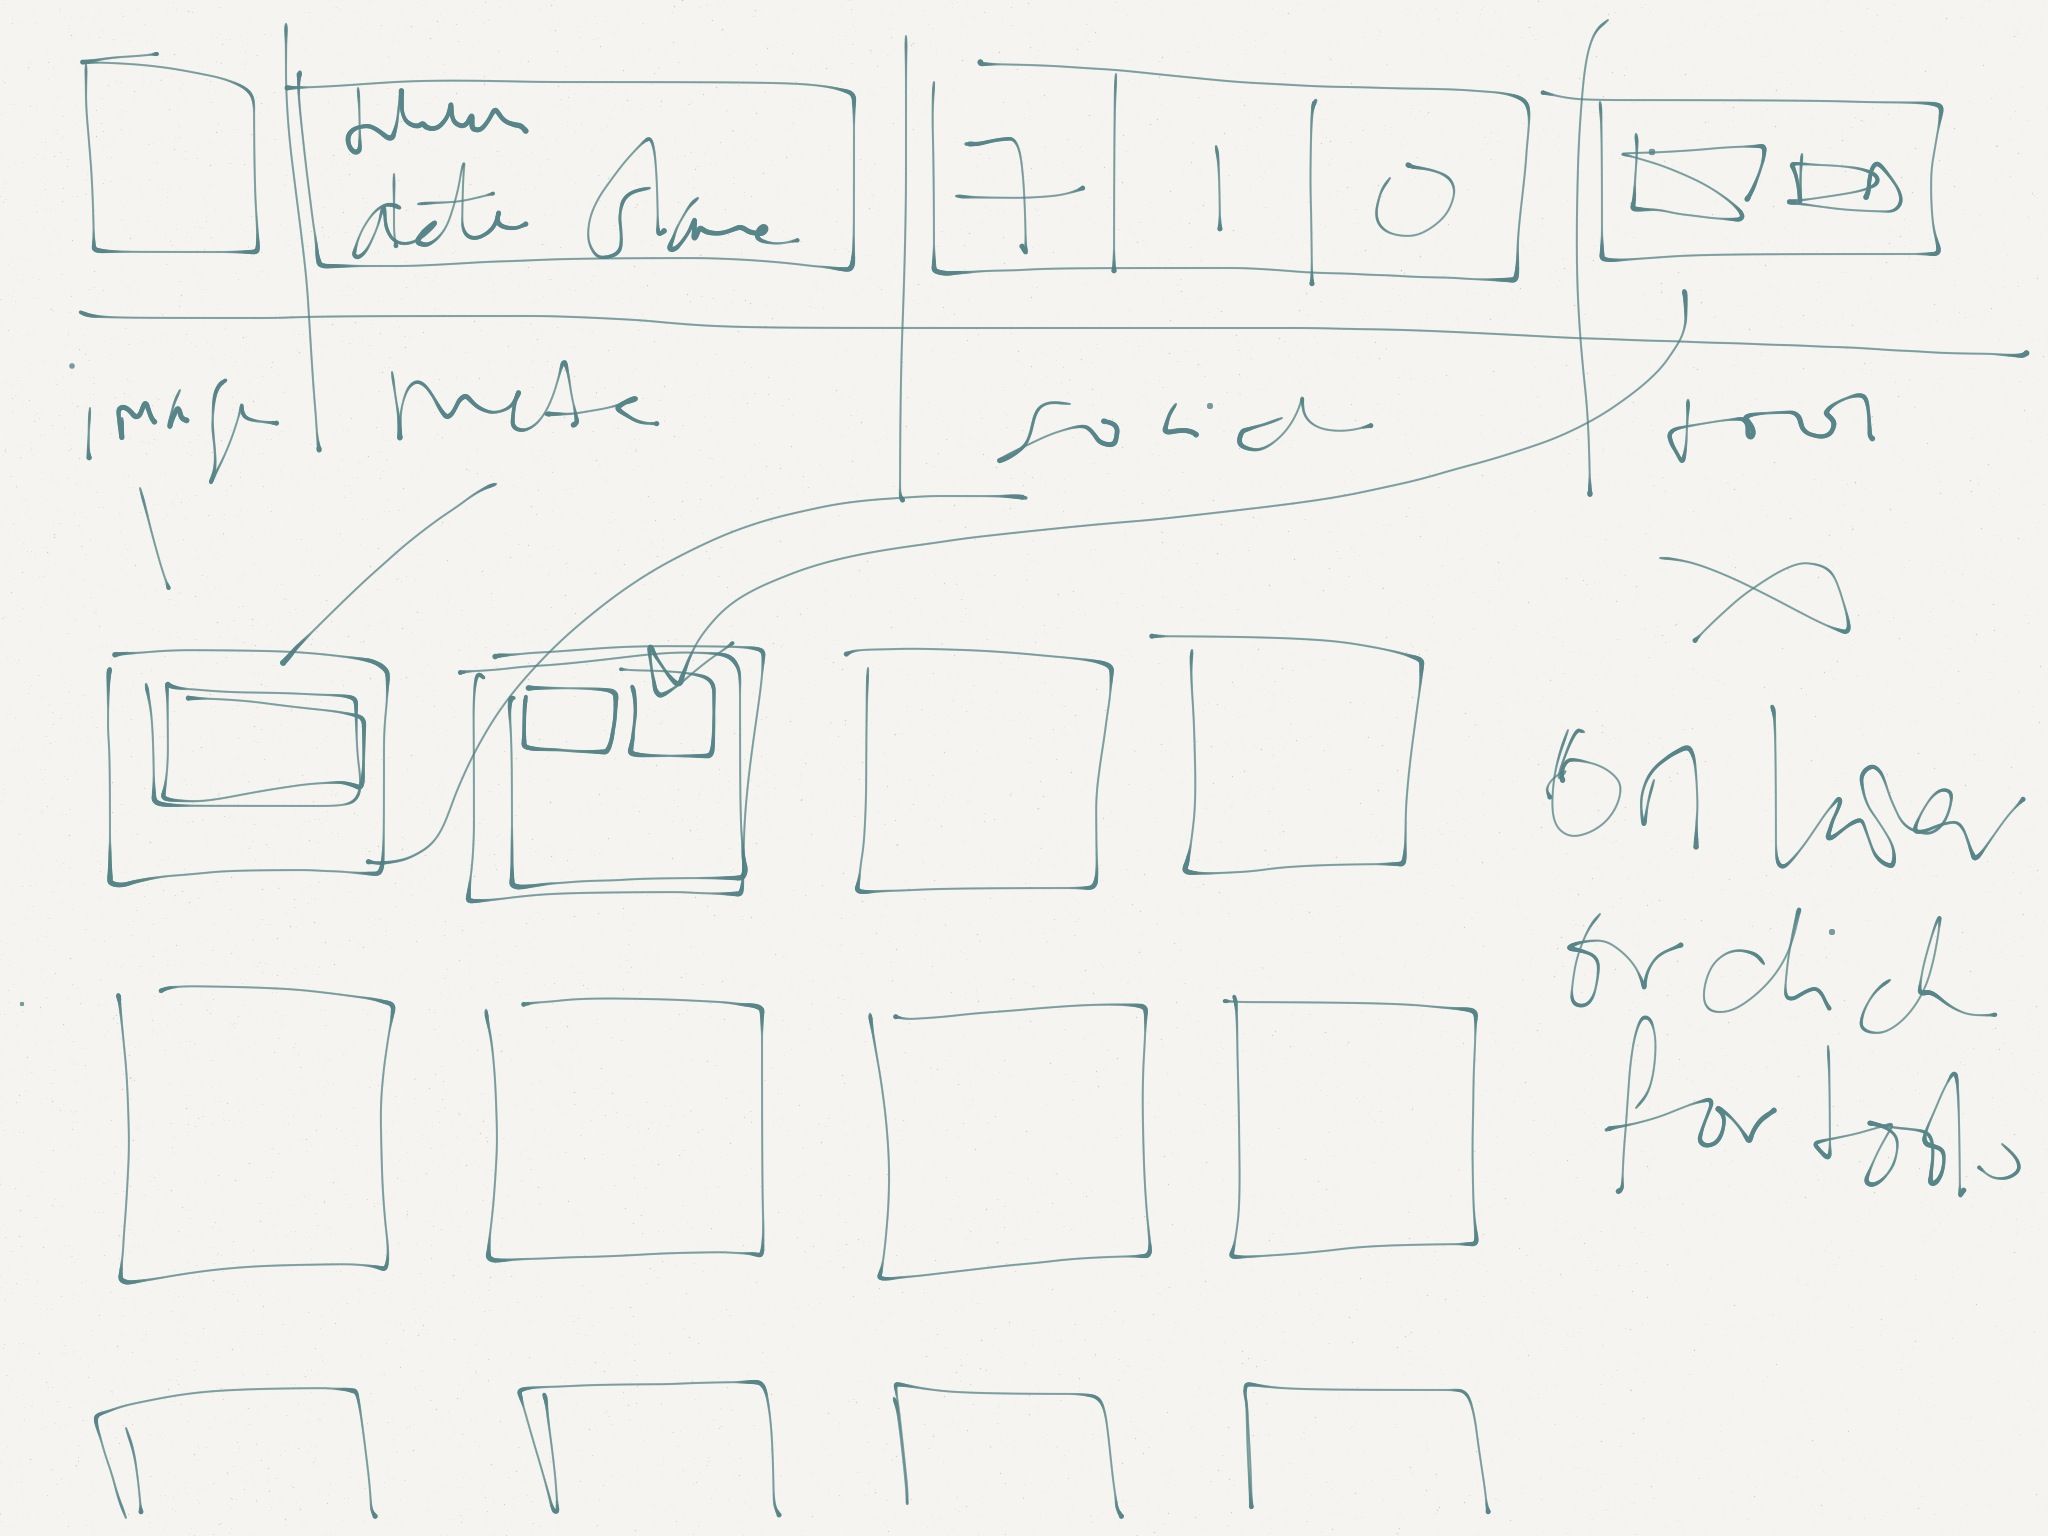 date
7 1 0
image meta social tools
on hover
or click
for tools